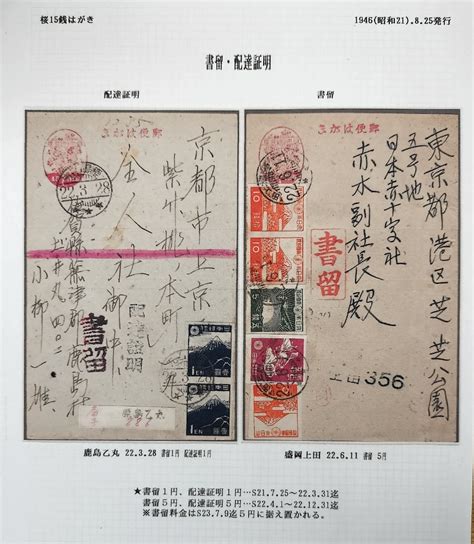 桜15銭はがき
1946(昭和21).8.25発行
書留・配達証明
配達証明
書留
きがは便郵
22.3.28
京都市上京
紫竹桃ノ本町
全人社御中
藤津郡鹿島村
土井丸四〇二
小柳一雄
書留
配達証明
鹿島乙丸
1EN
1EN
きがは便郵
22.6.11
東京都港区芝芝公園
五号地
日本赤十字社
赤水副社長殿
書留
10
10
5
5
上田 356
鹿島乙丸 22.3.28 書留1円 配達証明1円
盛岡上田 22.6.11 書留 5円
★書留1円、配達証明1円…S21.7.25~22.3.31迄
書留5円、配達証明5円…S22.4.1~22.12.31迄
※書留料金はS23.7.9迄5円に据え置かれる。